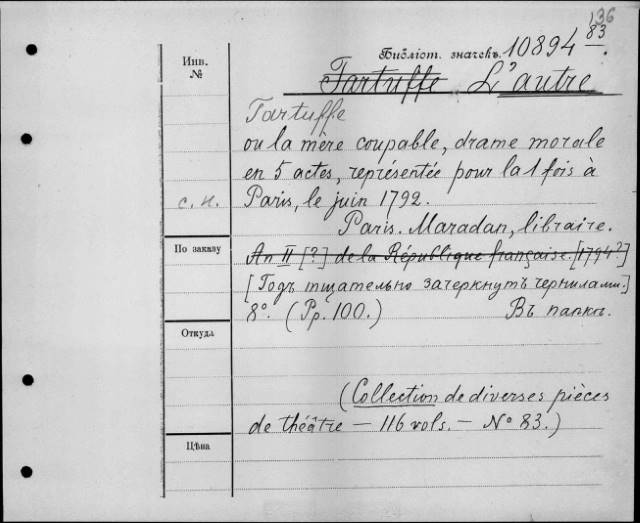 136
Библіот. значекъ. 10894 83.
Инв. №
Tartuffe L'autre
Tartuffe
ou la mère coupable, drame morale
en 5 actes, représentée pour la 1 fois à
с. н. Paris, le juin 1792.
Paris. Maradan, libraire.
По заказу
An II [?] de la République française. [1794?]
[Годъ тщательно зачеркнутъ чернилами.]
8°. (Pp. 100.) Въ папкѣ.
Откуда
(Collection de diverses pièces
de théâtre — 116 vols. — № 83.)
Цѣна